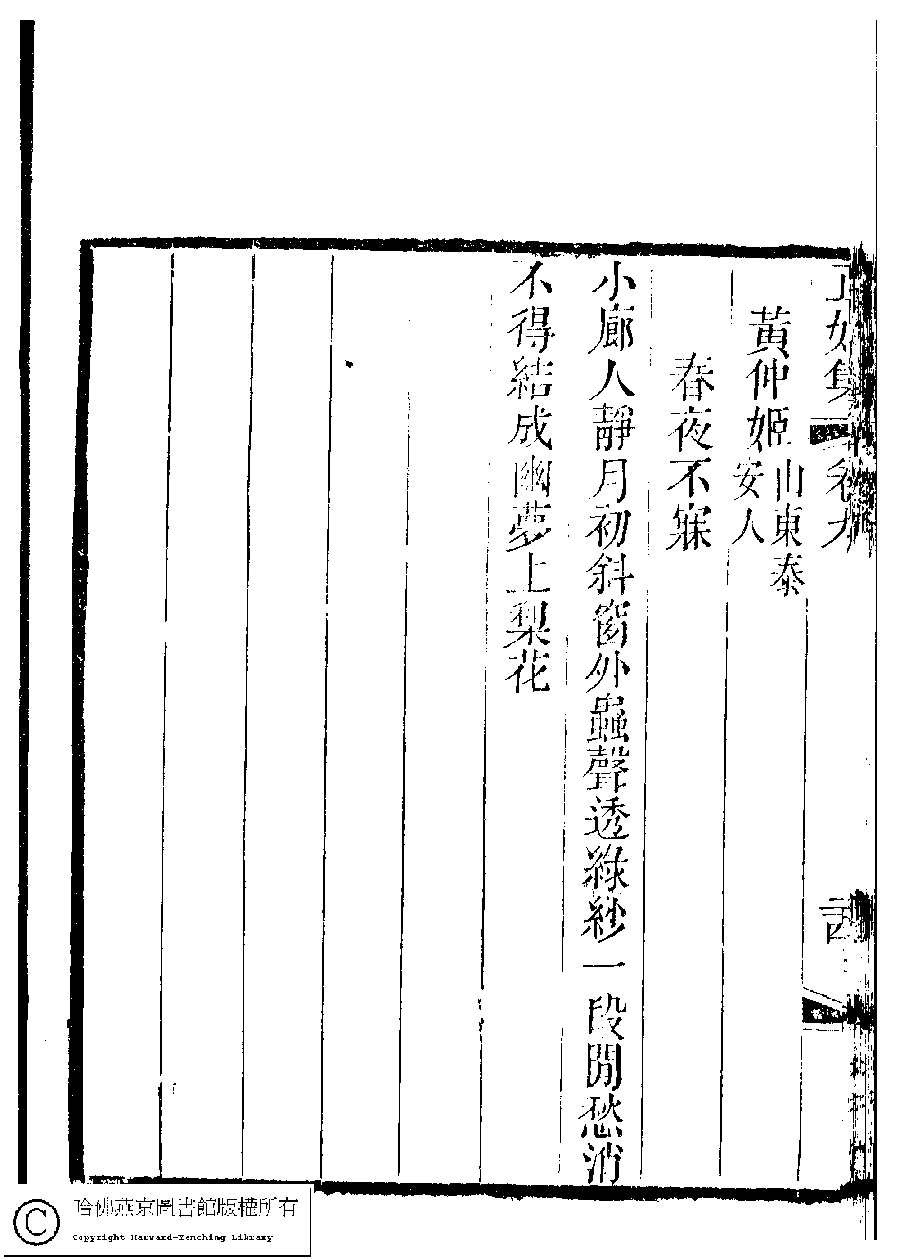 正始集 卷九
黃仲姬 山東泰
安人
春夜不寐
小廊人靜月初斜窗外蟲聲透綠紗一段閒愁消
不得結成幽夢上梨花
哈佛燕京圖書館版權所有
Copyright Harvard-Yenching Library